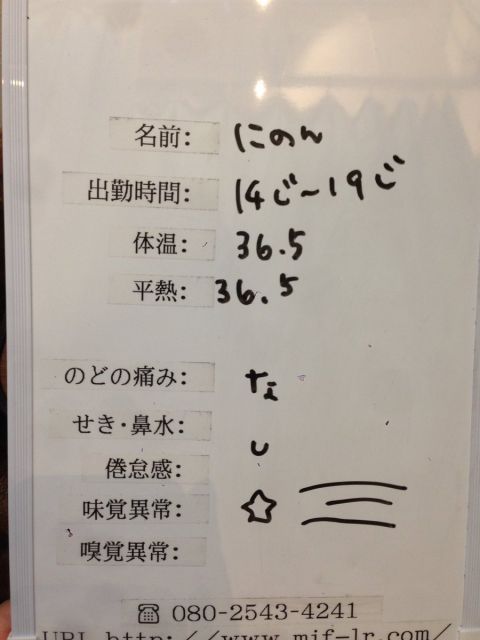 名前: にのん
出勤時間: 14じ~19じ
体温: 36.5
平熱: 36.5
のどの痛み: な
せき・鼻水:
し
倦怠感:
味覚異常: ☆
嗅覚異常:
☎ 080-2543-4241
URL http://www.mif-lr.com/